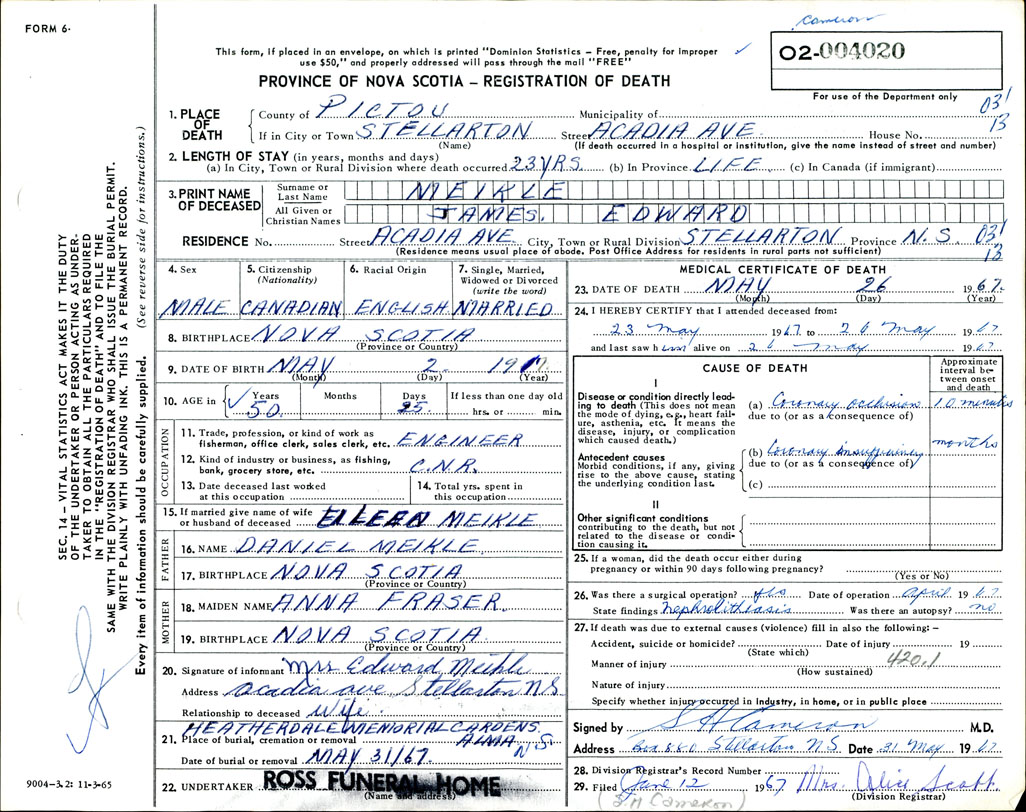 FORM 6.
Cameron
This form, if placed in an envelope, on which is printed "Dominion Statistics – Free, penalty for improper
use $50," and properly addressed will pass through the mail "FREE"
PROVINCE OF NOVA SCOTIA – REGISTRATION OF DEATH
O2-004020
For use of the Department only
031
13
1. PLACE OF DEATH
County of PICTOU Municipality of
If in City or Town STELLARTON Street ACADIA AVE. House No.
(Name) (If death occurred in a hospital or institution, give the name instead of street and number)
2. LENGTH OF STAY (in years, months and days)
(a) In City, Town or Rural Division where death occurred 23 YRS. (b) In Province LIFE (c) In Canada (if immigrant)
3. PRINT NAME OF DECEASED
Surname or Last Name MEIKLE
All Given or Christian Names JAMES. EDWARD
RESIDENCE No. Street ACADIA AVE. City, Town or Rural Division STELLARTON Province N.S. 031
(Residence means usual place of abode. Post Office Address for residents in rural parts not sufficient) 13
4. Sex MALE
5. Citizenship (Nationality) CANADIAN
6. Racial Origin ENGLISH
7. Single, Married, Widowed or Divorced (write the word) MARRIED
8. BIRTHPLACE NOVA SCOTIA
(Province or Country)
9. DATE OF BIRTH MAY 2 1917
(Month) (Day) (Year)
10. AGE in Years 50 Months Days 25 If less than one day old hrs. or min.
OCCUPATION
11. Trade, profession, or kind of work as fisherman, office clerk, sales clerk, etc. ENGINEER
12. Kind of industry or business, as fishing, bank, grocery store, etc. C.N.R.
13. Date deceased last worked at this occupation
14. Total yrs. spent in this occupation
15. If married give name of wife or husband of deceased EILEEN MEIKLE
FATHER
16. NAME DANIEL MEIKLE
17. BIRTHPLACE NOVA SCOTIA
(Province or Country)
MOTHER
18. MAIDEN NAME ANNA FRASER.
19. BIRTHPLACE NOVA SCOTIA
(Province or Country)
20. Signature of informant Mrs Edward Meikle
Address Acadia ave Stellarton N S
Relationship to deceased Wife.
HEATHERDALE MEMORIAL GARDENS
21. Place of burial, cremation or removal ALMA N S.
Date of burial or removal MAY 31/67
22. UNDERTAKER ROSS FUNERAL HOME
(Name and address)
MEDICAL CERTIFICATE OF DEATH
23. DATE OF DEATH MAY 26 1967.
(Month) (Day) (Year)
24. I HEREBY CERTIFY that I attended deceased from:
23 May 1967 to 26 May 1967
and last saw him alive on 26 May 1967
CAUSE OF DEATH
Approximate interval between onset and death
I
Disease or condition directly leading to death (This does not mean the mode of dying, e.g., heart failure, asthenia, etc. It means the disease, injury, or complication which caused death.)
(a) Coronary occlusion 10 minutes
due to (or as a consequence of)
Antecedent causes
Morbid conditions, if any, giving rise to the above cause, stating the underlying condition last.
(b) Coronary insufficiency months
due to (or as a consequence of)
(c)
II
Other significant conditions contributing to the death, but not related to the disease or condition causing it.
25. If a woman, did the death occur either during pregnancy or within 90 days following pregnancy?
(Yes or No)
26. Was there a surgical operation? yes Date of operation April 1967.
State findings Nephrolithiasis Was there an autopsy? no
27. If death was due to external causes (violence) fill in also the following: –
Accident, suicide or homicide? Date of injury 19
(State which)
Manner of injury 420.1
(How sustained)
Nature of injury
Specify whether injury occurred in Industry, in home, or in public place
Signed by S H Cameron M.D.
Address Box 880 Stellarton N.S. Date 31 May 1967
28. Division Registrar's Record Number
29. Filed June 12 1967 Mrs. Alice Scott
(Division Registrar)
(S H Cameron)
SEC. 14 – VITAL STATISTICS ACT MAKES IT THE DUTY
OF THE UNDERTAKER OR PERSON ACTING AS UNDER-
TAKER TO OBTAIN ALL THE PARTICULARS REQUIRED
IN THE "REGISTRATION OF DEATH" AND TO FILE THE
SAME WITH THE DIVISION REGISTRAR WHO SHALL ISSUE THE BURIAL PERMIT.
WRITE PLAINLY WITH UNFADING INK. THIS IS A PERMANENT RECORD.
Every item of information should be carefully supplied. (See reverse side for instructions.)
9004-3.2: 11-3-65